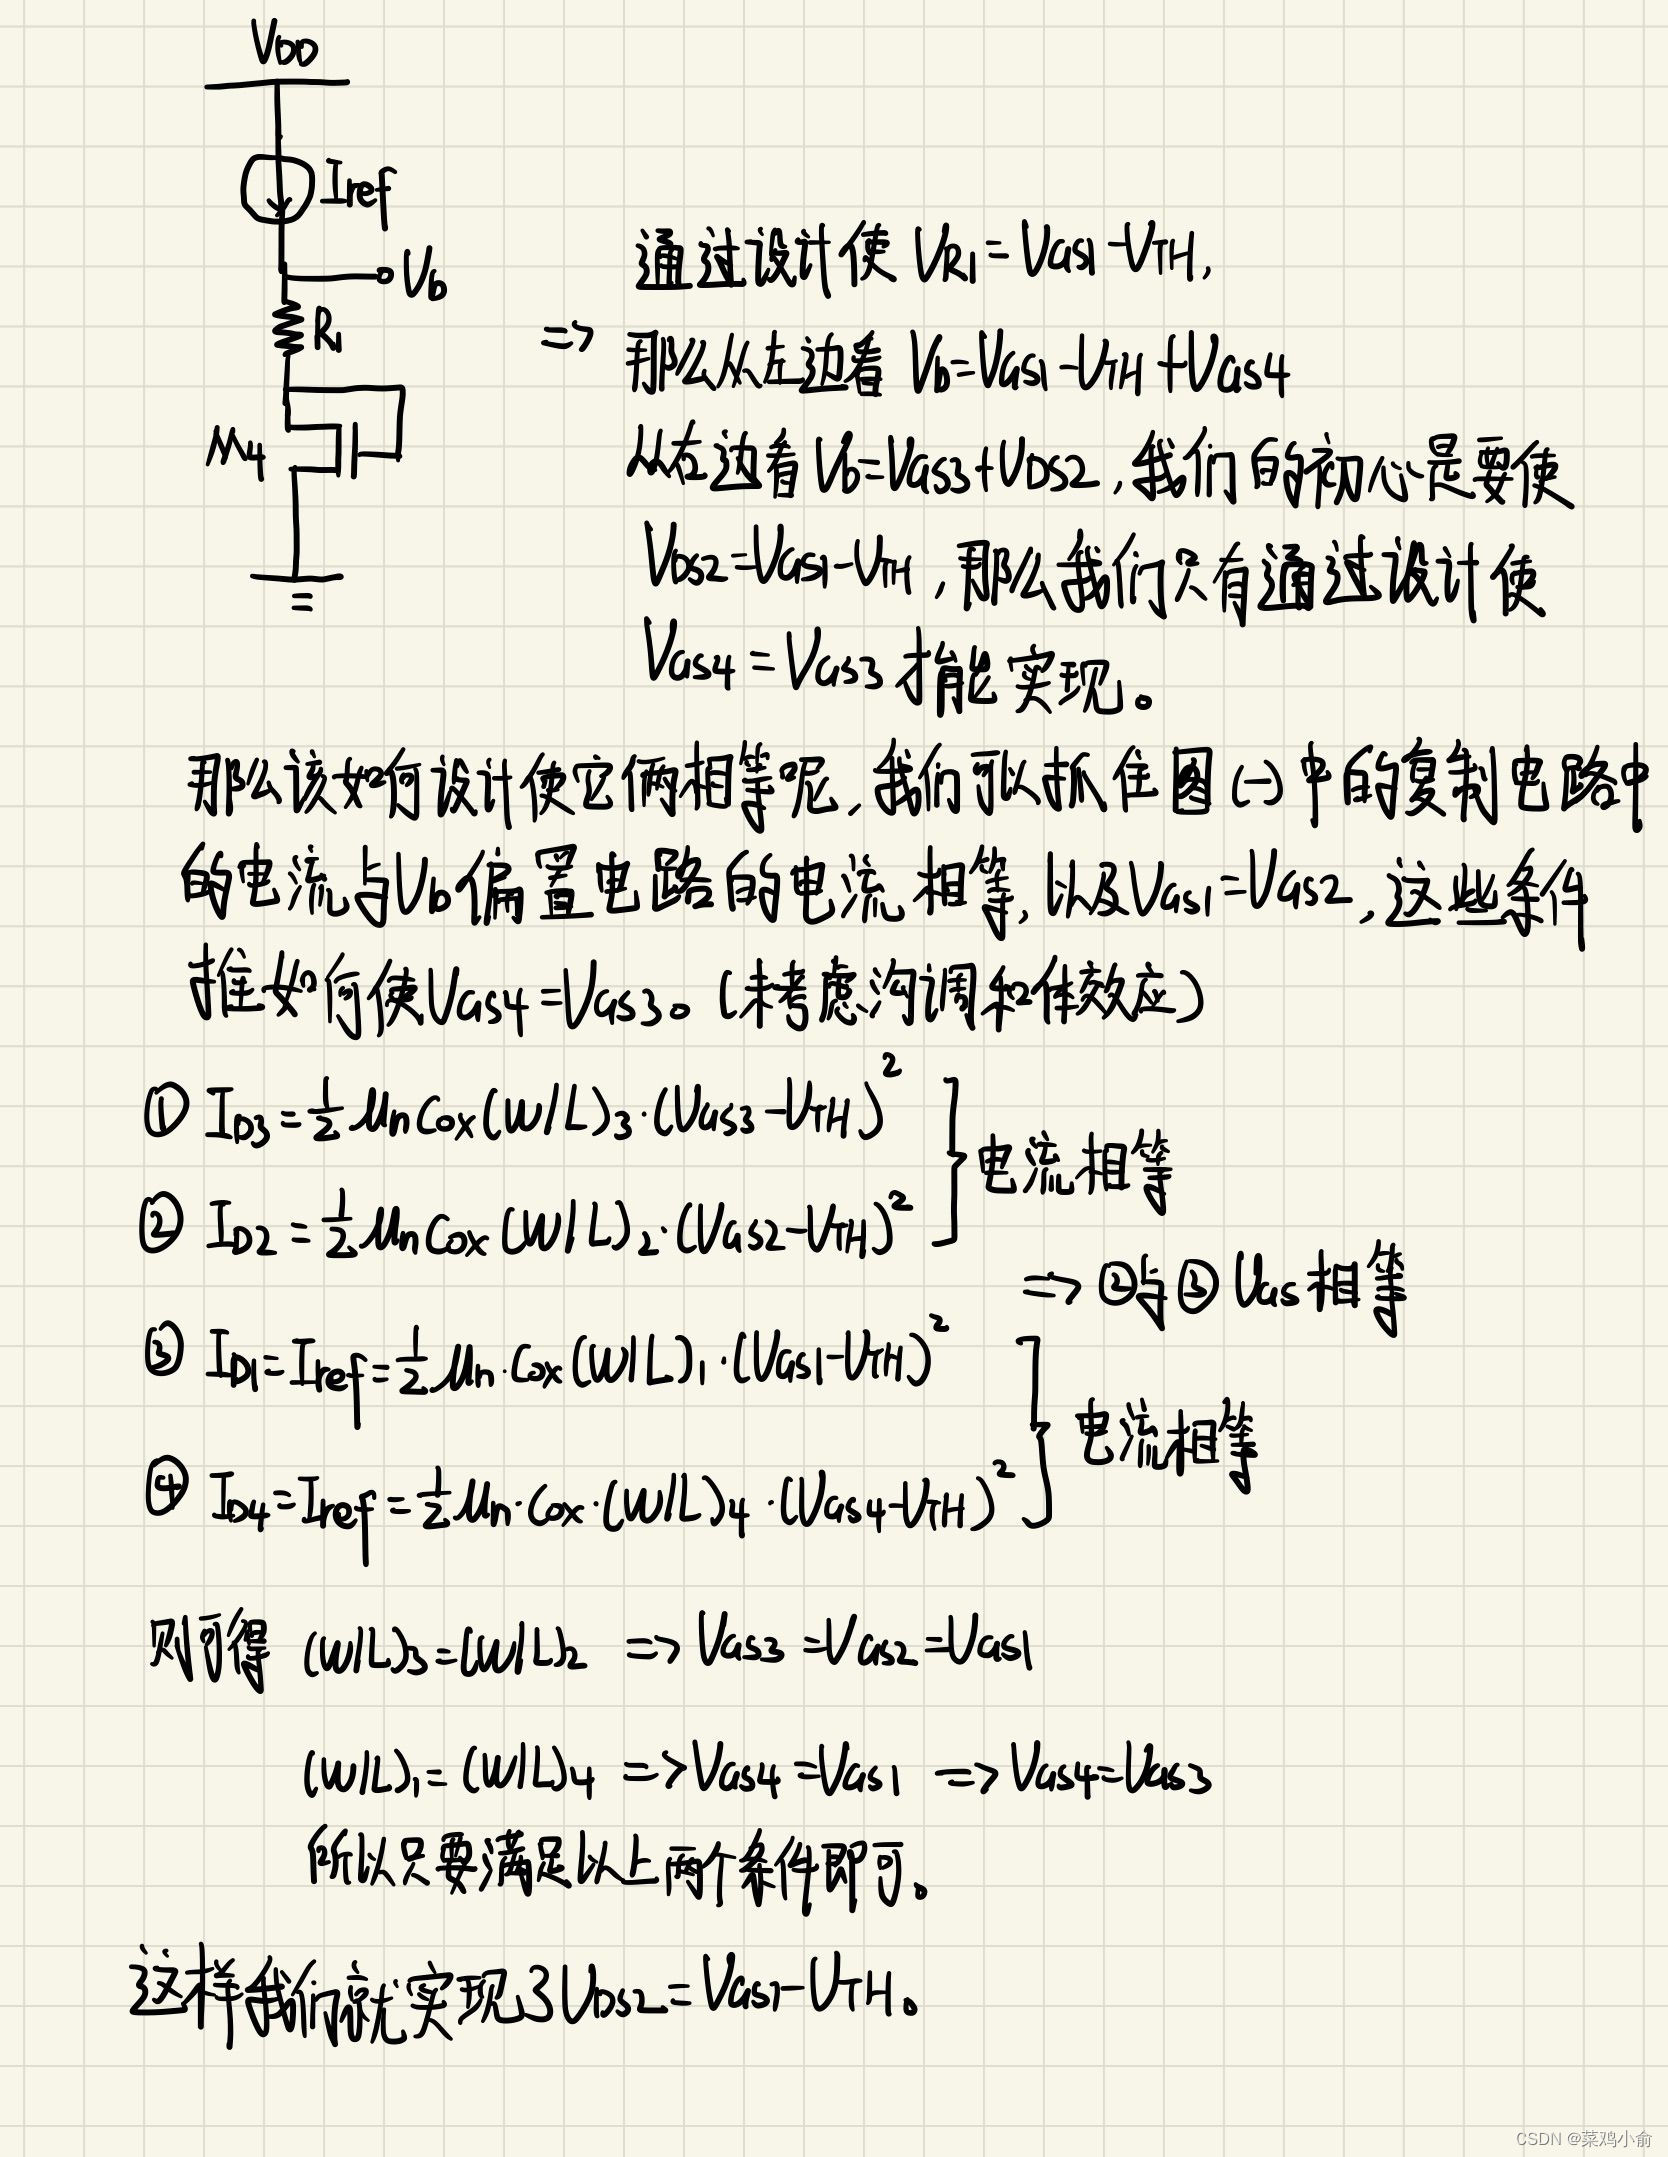 VDD
Iref
Vb
R1
M4
通过设计使 VR1=VGS1-VTH,
=> 那么从左边看 Vb=VGS1-VTH+VGS4
从右边看 Vb=VGS3+VDS2,我们的初心是要使
VDS2=VGS1-VTH,那么我们只有通过设计使
VGS4=VGS3才能实现。
那么该如何设计使它俩相等呢,我们可以抓住图(一)中的复制电路中
的电流与Vb偏置电路的电流相等,以及VGS1=VGS2,这些条件
推如何使VGS4=VGS3。(未考虑沟调和体效应)
① ID3=½μnCox(W/L)3·(VGS3-VTH)²
电流相等
② ID2=½μnCox(W/L)2·(VGS2-VTH)²
=> ②与③VGS相等
③ ID1=Iref=½μn·Cox(W/L)1·(VGS1-VTH)²
电流相等
④ ID4=Iref=½μn·Cox·(W/L)4·(VGS4-VTH)²
则可得 (W/L)3=(W/L)2 => VGS3=VGS2=VGS1
(W/L)1=(W/L)4 => VGS4=VGS1 => VGS4=VGS3
所以只要满足以上两个条件即可。
这样我们就实现了VDS2=VGS1-VTH。
CSDN @菜鸡小俞